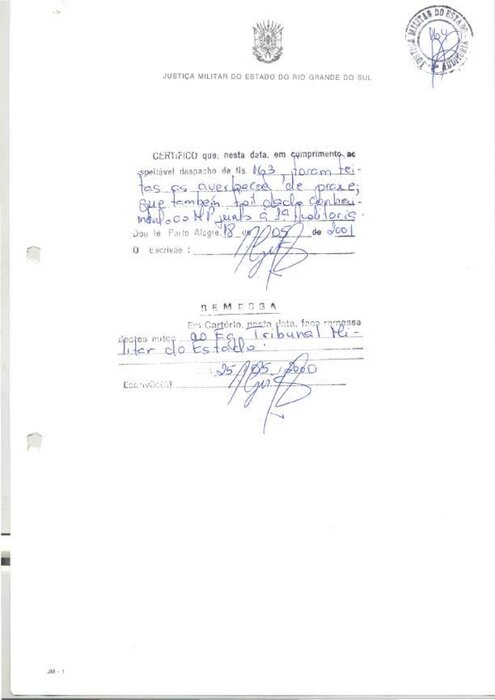 JUSTIÇA MILITAR DO ESTADO
164
AUDITORIA
JUSTIÇA MILITAR DO ESTADO DO RIO GRANDE DO SUL
CERTIFICO que, nesta data, em cumprimento ao
espeitável despacho de fls 163, foram fei-
tas as averbações de praxe;
que também foi dado conheci-
mento ao MP junto à 1ª Auditoria.
Dou fé Porto Alegre, 18 de 05 de 2001
O Escrivão :
REMESSA
Em Cartório, nesta data, faço remessa
destes autos ao Eg. Tribunal Mi-
litar do Estado.
25 / 05 / 2000
Escrivão(ã)
JM - 1